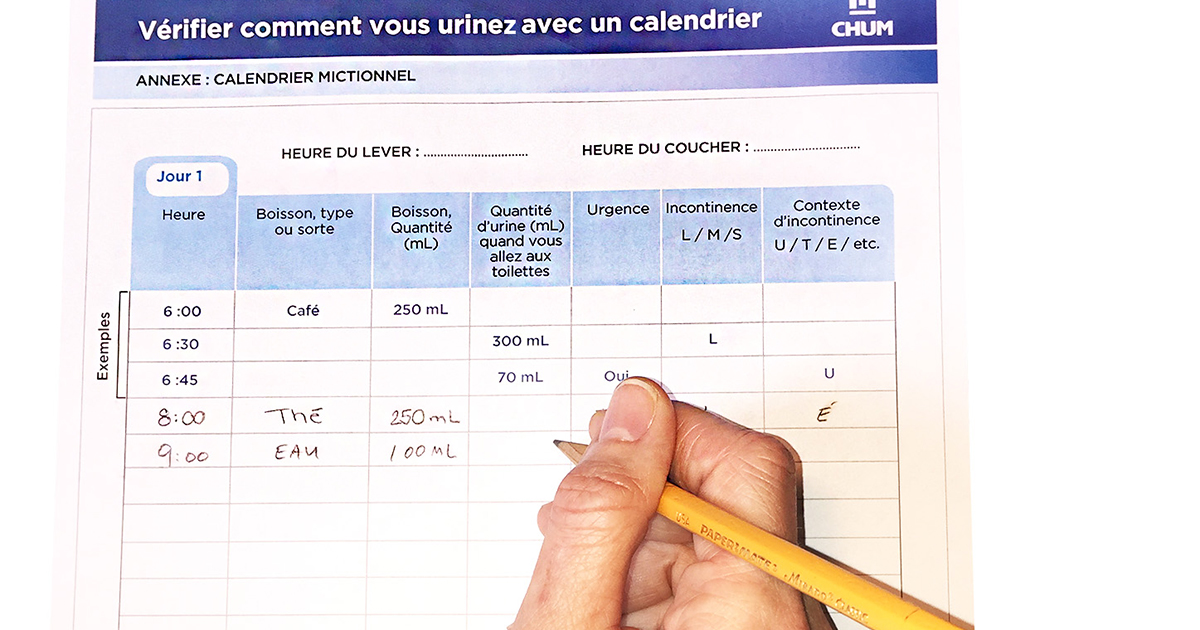 Vérifier comment vous urinez avec un calendrier
CHUM
ANNEXE : CALENDRIER MICTIONNEL
HEURE DU LEVER : ................................ HEURE DU COUCHER : ................................
Jour 1
Heure
Boisson, type
ou sorte
Boisson,
Quantité
(mL)
Quantité
d'urine (mL)
quand vous
allez aux
toilettes
Urgence
Incontinence
L / M /S
Contexte
d'incontinence
U / T / E / etc.
Exemples
6 :00 Café 250 mL
6 :30 300 mL L
6 :45 70 mL Oui U
8:00 THÉ 250 mL É
9:00 EAU 100 ML
USA PAPERMATE